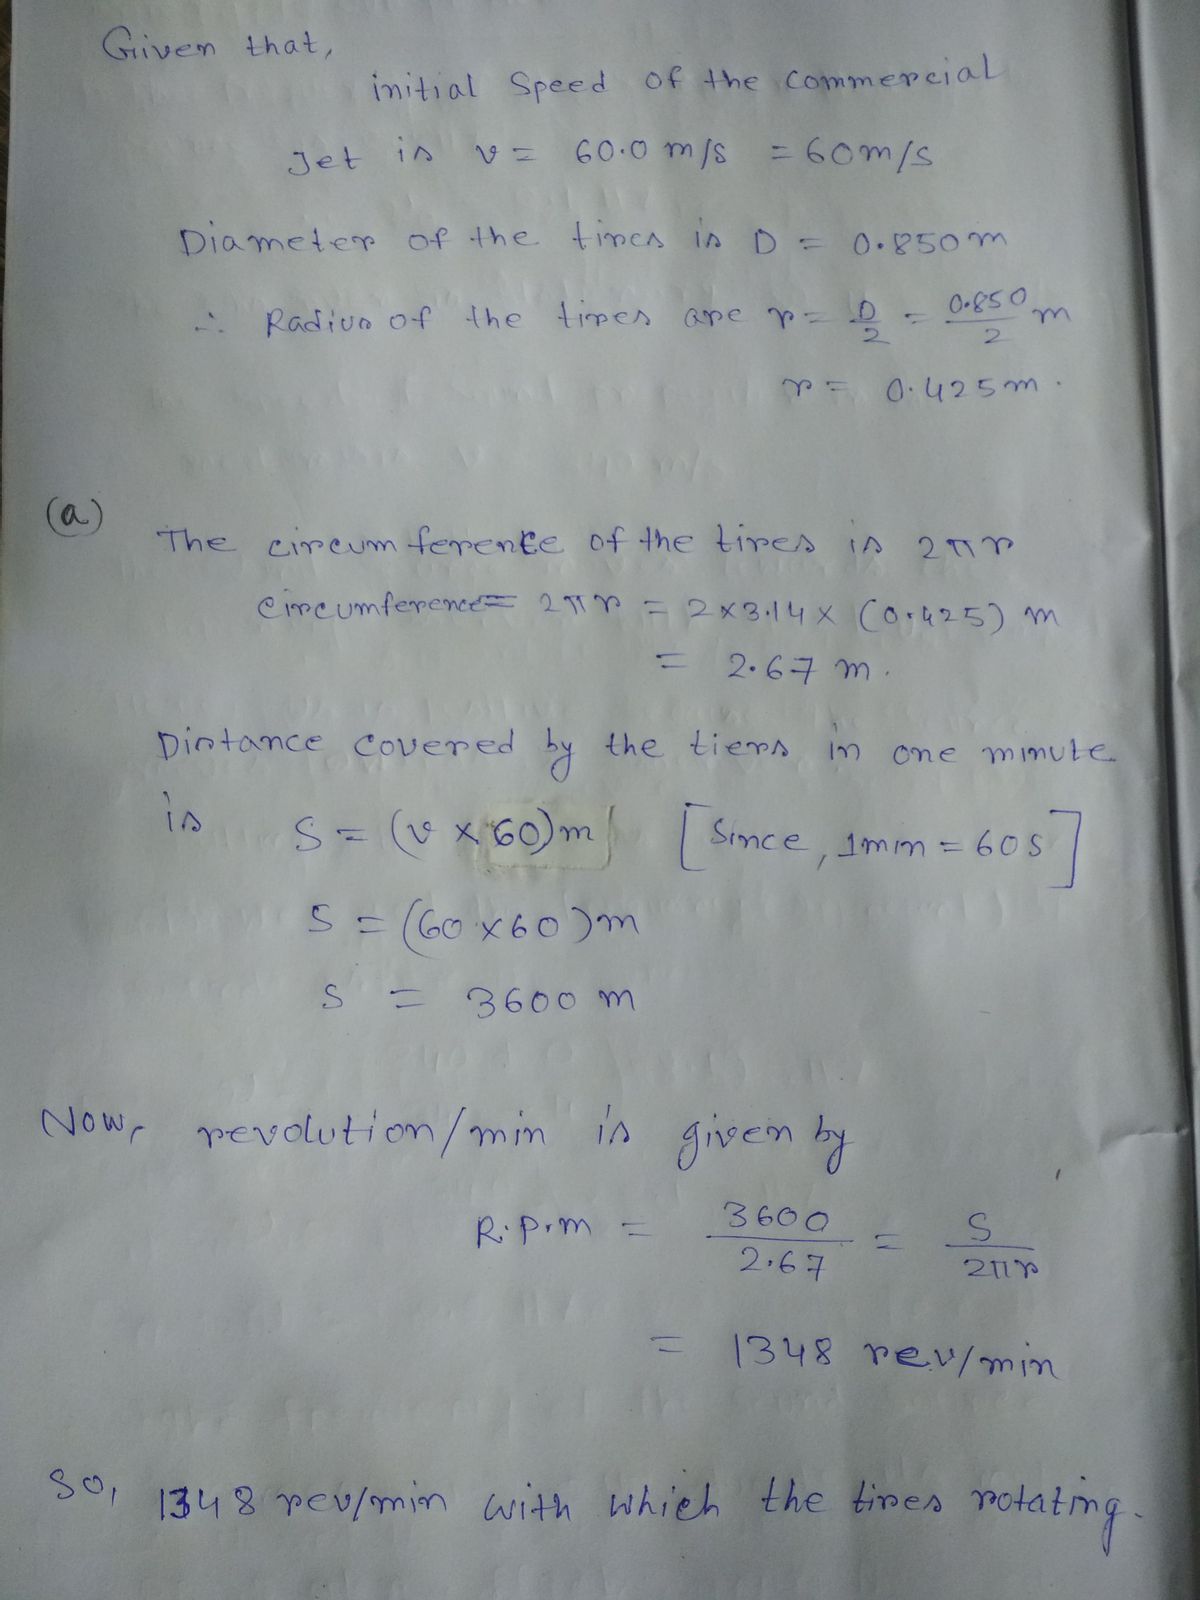 Given that,
initial Speed of the commercial
Jet is v = 60.0 m/s = 60m/s
Diameter of the tires is D = 0.850m
∴ Radius of the tires are r = D/2 = 0.850/2 m
r = 0.425m.
(a)
The circumference of the tires is 2πr
Circumference = 2πr = 2×3.14× (0.425) m
= 2.67 m.
Distance covered by the tiers in one minute
is S = (v × 60)m [Since, 1min = 60s]
S = (60×60)m
S = 3600 m
Now, revolution/min is given by
R.P.m = 3600/2.67 = S/2πr
= 1348 rev/min
So, 1348 rev/min with which the tires rotating.